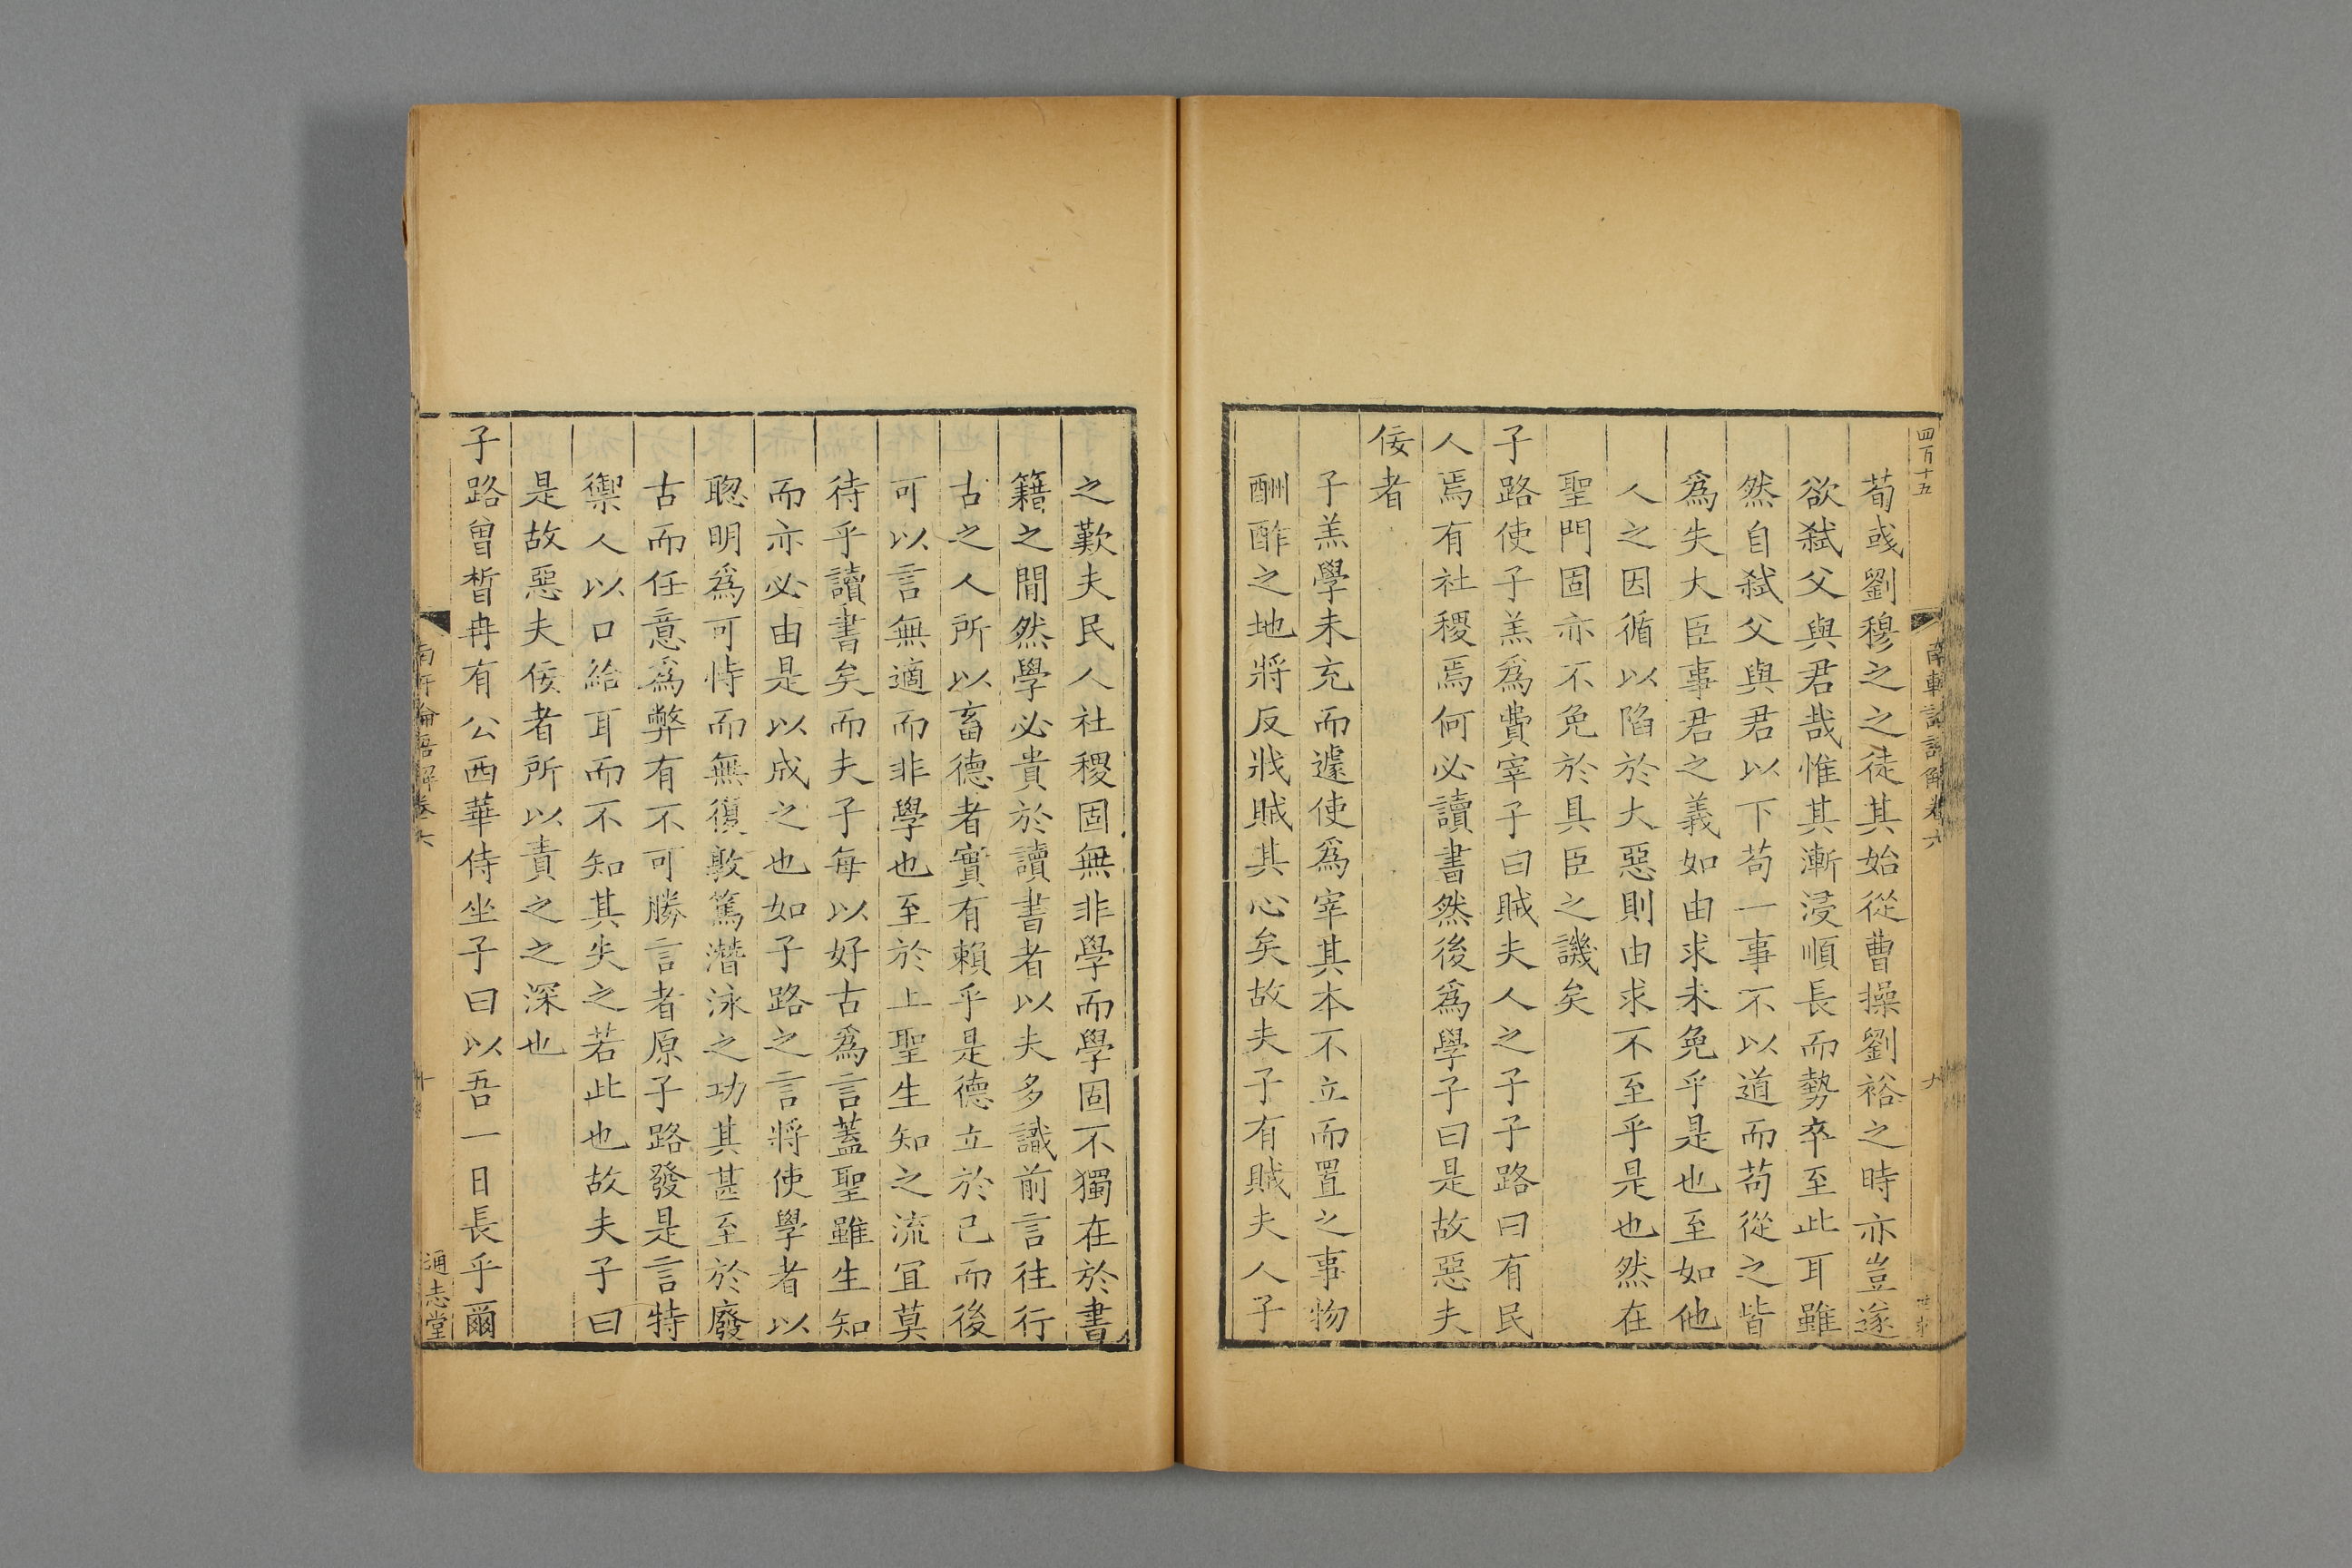 四百十五
南軒論語解卷六
九
荀彧劉穆之之徒其始從曹操劉裕之時亦豈遂
欲弑父與君哉惟其漸浸順長而勢卒至此耳雖
然自弑父與君以下苟一事不以道而苟從之皆
爲失大臣事君之義如由求未免乎是也至如他
人之因循以陷於大惡則由求不至乎是也然在
聖門固亦不免於具臣之譏矣
子路使子羔爲費宰子曰賊夫人之子子路曰有民
人焉有社稷焉何必讀書然後爲學子曰是故惡夫
佞者
子羔學未充而遽使爲宰其本不立而置之事物
酬酢之地將反戕賊其心矣故夫子有賊夫人子
之歎夫民人社稷固無非學而學固不獨在於書
籍之間然學必貴於讀書者以夫多識前言往行
古之人所以畜德者實有賴乎是德立於己而後
可以言無適而非學也至於上聖生知之流宜莫
待乎讀書矣而夫子每以好古爲言蓋聖雖生知
而亦必由是以成之也如子路之言將使學者以
聦明爲可恃而無復敦篤濳泳之功其甚至於廢
古而任意爲弊有不可勝言者原子路發是言特
禦人以口給耳而不知其失之若此也故夫子曰
是故惡夫佞者所以責之之深也
子路曾晳冉有公西華侍坐子曰以吾一日長乎爾
南軒論語解卷六
十
通志堂